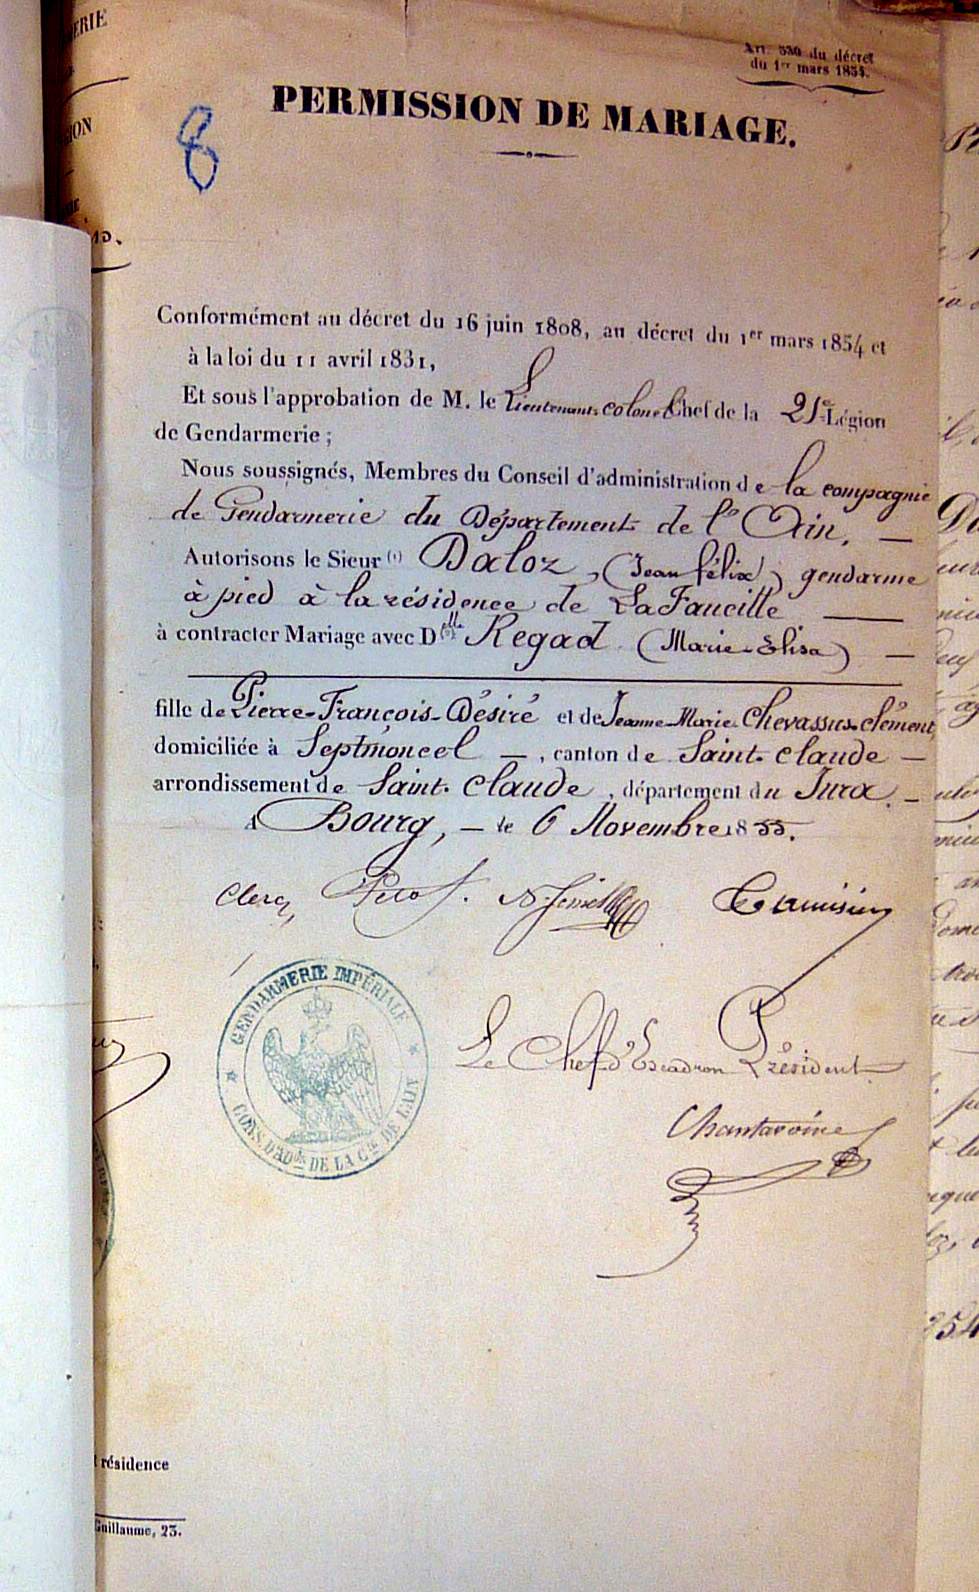 Art. 330 du décret
du 1er mars 1854.
PERMISSION DE MARIAGE.
8
Conformément au décret du 16 juin 1808, au décret du 1er mars 1854 et
à la loi du 11 avril 1831,
Et sous l'approbation de M. le Lieutenant-colonel Chef de la 21e Légion
de Gendarmerie ;
Nous soussignés, Membres du Conseil d'administration de la compagnie
de Gendarmerie du Département de l'Ain. —
Autorisons le Sieur (1) Daloz, (Jean félix) gendarme
à pied à la résidence de La Faucille —
à contracter Mariage avec Delle Regad (Marie-Elisa) —
fille de Pierre-François-Désiré et de Jeanne-Marie Chevassus-clément,
domiciliée à Septmoncel —, canton de Saint-claude —
arrondissement de Saint-Claude, département du Jura. —
A Bourg, — le 6 Novembre 1855.
Clerq,
GENDARMERIE IMPÉRIALE
CONS. D'ADon DE LA Cie DE L'AIN
Le Chef d'Escadron Président
Chantavoine
résidence
Guillaume, 23.